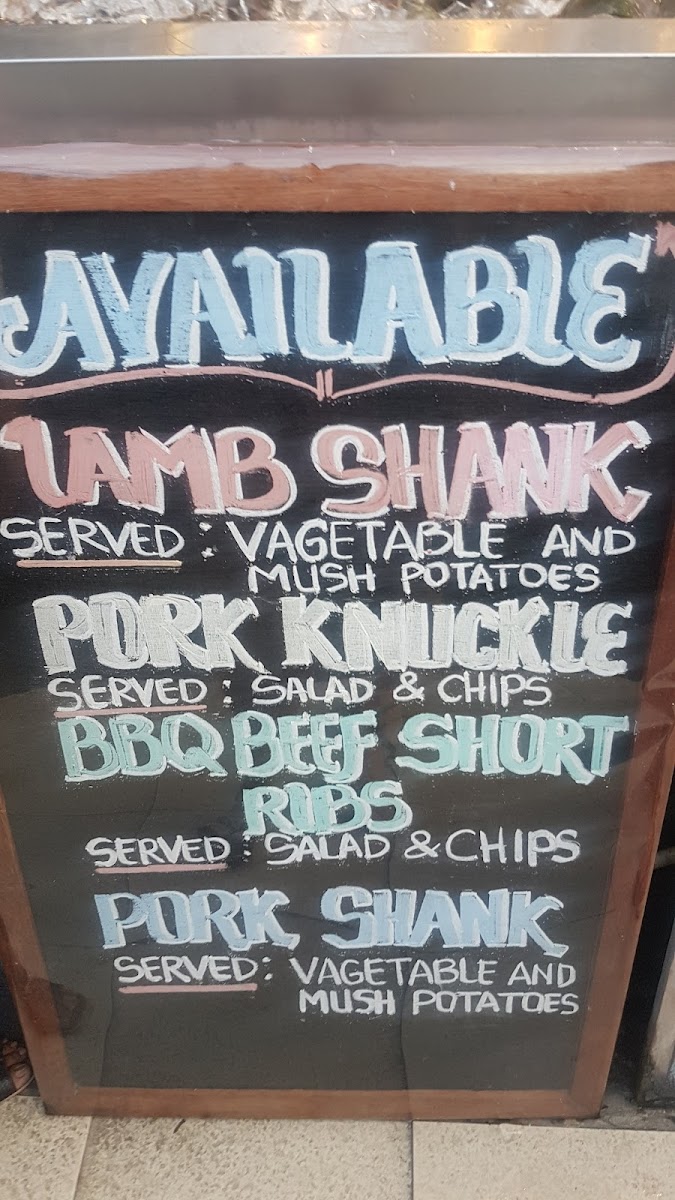 AVAILABLE
LAMB SHANK
SERVED : VAGETABLE AND
MUSH POTATOES
PORK KNUCKLE
SERVED : SALAD & CHIPS
BBQ BEEF SHORT
RIBS
SERVED : SALAD & CHIPS
PORK SHANK
SERVED : VAGETABLE AND
MUSH POTATOES